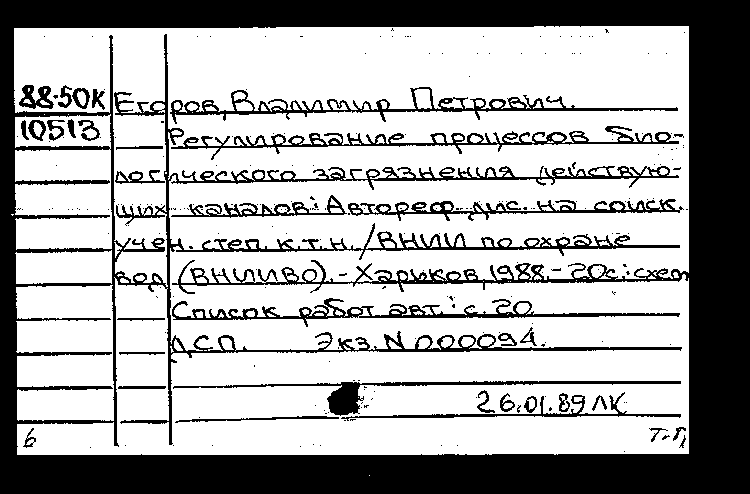 88-50К Егоров, Владимир Петрович.
10513 Регулирование процессов био-
логического загрязнения действую-
щих каналов: Автореф. дис. на соиск.
учен. степ. к.т.н. / ВНИИ по охране
вод (ВНИИВО). - Харьков, 1988. - 20с.: схем
Список работ авт.: с. 20
Д.С.П. Экз. N 000094.
26.01.89 ЛК
6